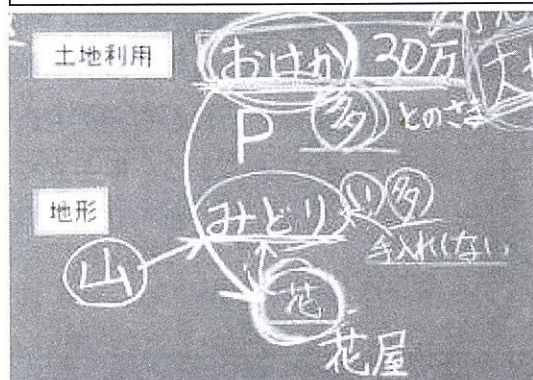 土地利用
おはか 30万
P 多 とのさま
地形
みどり 多
手入れしない
山
花
花屋